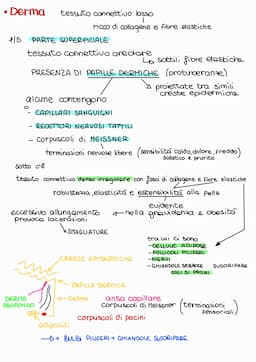 • Derma
tessuto connettivo lasso
ricco di collagene e fibre elastiche
1/5 PARTE SUPERFICIALE
tessuto connettivo areolare
sottili fibre elastiche
PRESENZA DI PAPILLE DERMICHE (protuberanze)
proiettate tra simili
creste epidermiche
alcune contengono
- CAPILLARI SANGUIGNI
- RECETTORI NERVOSI TATTILI
- corpuscoli di MEISSNER
terminazioni nervose libere (sensibilità caldo, dolore, freddo)
solletico e prurito
sotto c'è
tessuto connettivo denso irregolare con fasci di collagene e fibre elastiche
robustezza, elasticità e estensibilità alla pelle
evidente
eccessivo allungamento nella gravidanza e obesità
provoca lacerazioni
SMAGLIATURE
tra cui ci sono
- CELLULE ADIPOSE
- FOLLICOLI PILIFERI
- NERVI
- GHIANDOLE SEBACEE SUDORIPARE
COLI DI PACINI
CRESTE EPIDERMICHE
PAPILLA DERMICA
DERMA
PROFONDO
DERMA
ansa capillare
corpuscoli di Meissner (terminazioni
sensoriali)
corpuscoli di pacini
adipociti
BULBI PILIFERI + GHIANDOLE SUDORIPARE